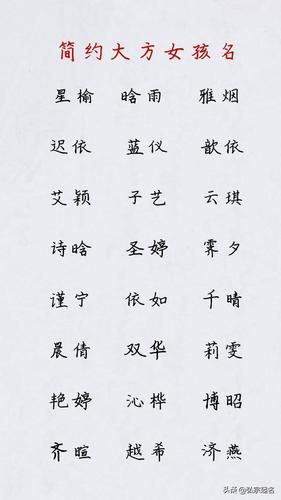 简约大方女孩名
星榆 晗雨 雅烟
迟依 蓝仪 歆依
艾颖 子艺 云琪
诗晗 圣婷 霁夕
谨宁 依如 千晴
晨倩 双华 莉雯
艳婷 沁桦 博昭
齐暄 越希 济燕
头条@弘宗起名